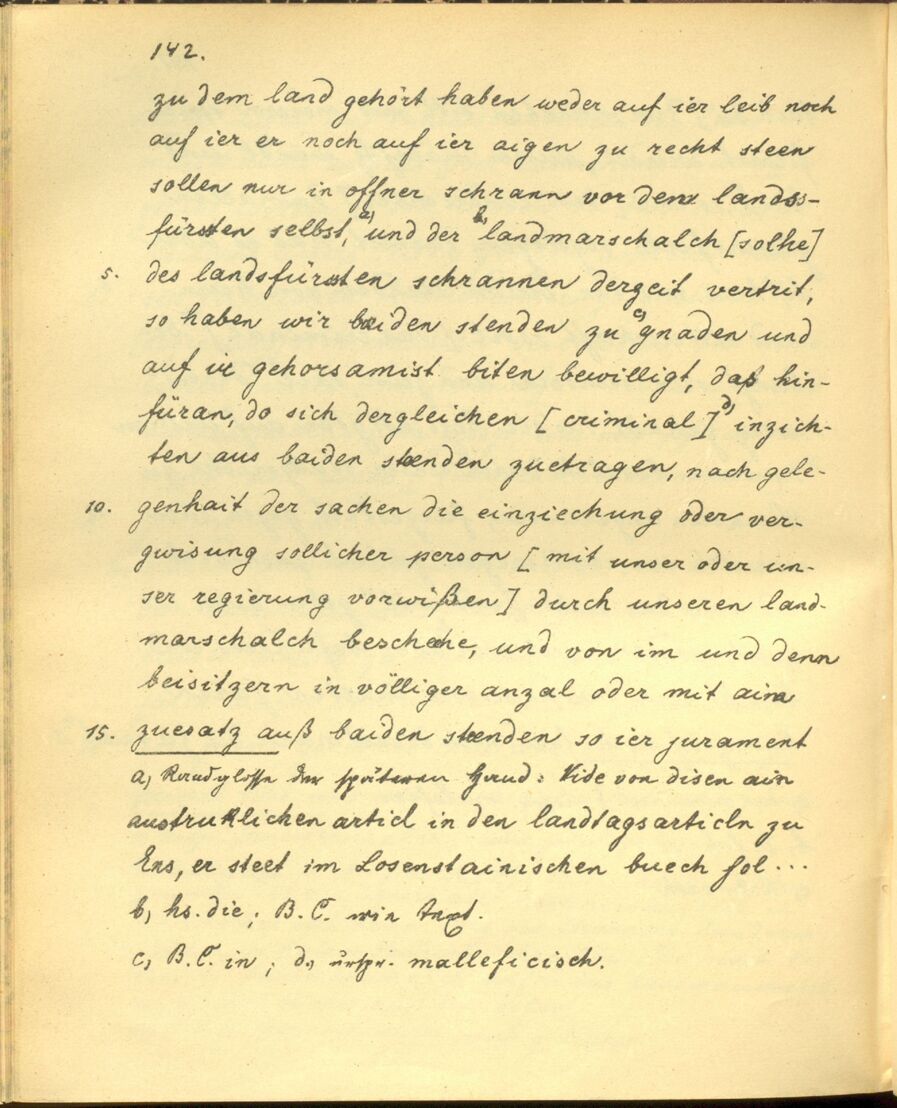 142.
zu dem land gehört haben weder auf ier leib noch
auf ier er noch auf ier aigen zu recht steen
sollen nur in offner schrann vor dem landss-
fürsten selbst, a) und der b) landmarschalch [solhe]
5. des landsfürsten schrannen derzeit vertrit,
so haben wir baiden stenden zu c) gnaden und
auf ir gehorsamist biten bewilligt, daß hin-
füran, do sich dergleichen [criminal] d) inzich-
ten aus baiden stenden zuetragen, nach gele-
10. genhait der sachen die einziechung oder ver-
gwisung sollicher person [mit unser oder un-
ser regierung vorwißen] durch unseren land-
marschalch beschehe, und von im und denn
beisitzern in völliger anzal oder mit aim
15. zuesatz auß baiden stenden so ier jurament
a, Randglosse der späteren Hand: Vide von disen ain
austruklichen articl in den landtagsarticln zu
Ens, er steet im Losenstainischen buech fol...
b, hs. die; B. C. wie Text.
c, B. C. in; d., urspr. malleficisch.